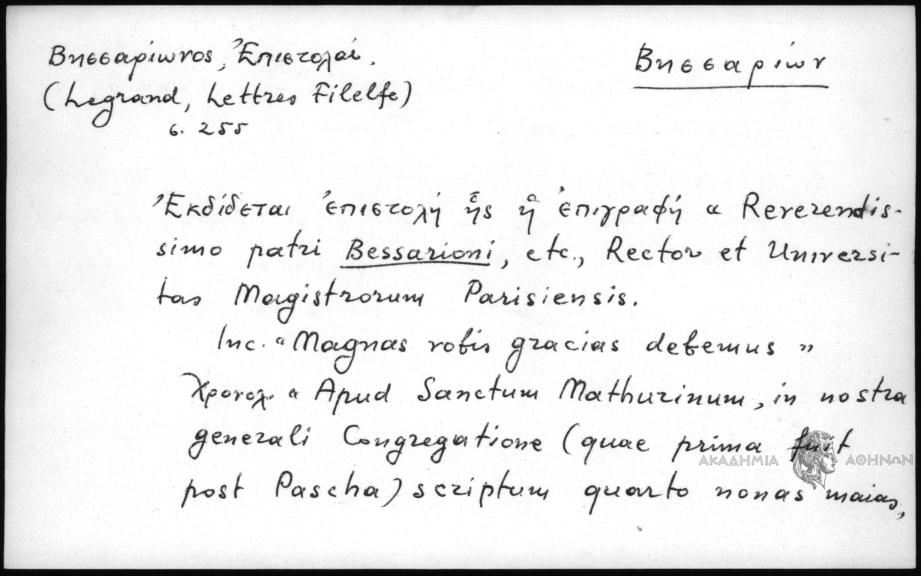 Βησσαρίωνος, Ἐπιστολαί.
Βησσαρίων
(Legrand, Lettres Filelfe)
σ. 255
Ἐκδίδεται ἐπιστολή ἧς ἡ ἐπιγραφή « Reverendis-
simo patri Bessarioni, etc., Rector et Universi-
tas Magistrorum Parisiensis.
Inc. « Magnas vobis gracias debemus »
Χρονολ. « Apud Sanctum Mathurinum, in nostra
generali Congregatione (quae prima fuit
ΑΚΑΔΗΜΙΑ ΑΘΗΝΩΝ
post Pascha) scriptum quarto nonas maias,